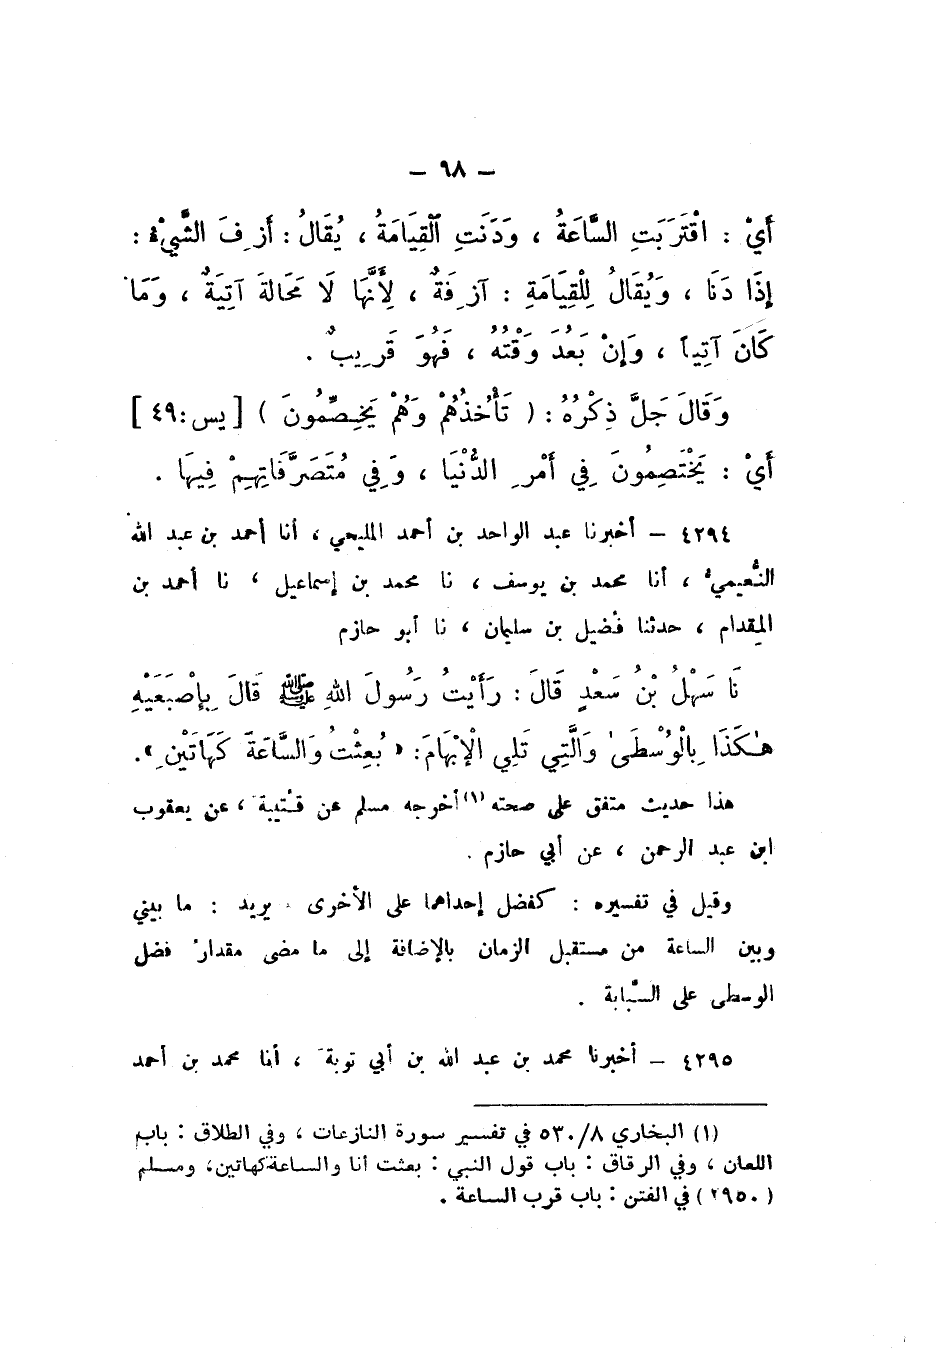 – ٩٨ –
أَيْ : اقْتَرَبَتِ السَّاعَةُ ، وَدَنَتِ الْقِيَامَةُ ، يُقَالُ : أَزِفَ الشَّيْءُ :
إِذَا دَنَا ، وَيُقَالُ لِلْقِيَامَةِ : آزِفَةٌ ، لِأَنَّهَا لَا مَحَالَةَ آتِيَةٌ ، وَمَا
كَانَ آتِياً ، وَإِنْ بَعُدَ وَقْتُهُ ، فَهُوَ قَرِيبٌ .
وَقَالَ جَلَّ ذِكْرُهُ : ( تَأْخُذُهُمْ وَهُمْ يَخِصِّمُونَ ) [ يس : ٤٩ ]
أَيْ : يَخْتَصِمُونَ فِي أَمْرِ الدُّنْيَا ، وَفِي مُتَصَرَّفَاتِهِمْ فِيهَا .
٤٢٩٤ – أخبرنا عبد الواحد بن أحمد المليحي ، أنا أحمد بن عبد الله
النُّعيمي ، أنا محمد بن يوسف ، نا محمد بن إسماعيل ، نا أحمد بن
المِقدام ، حدثنا فُضيل بن سليمان ، نا أبو حازم
نَا سَهْلُ بْنُ سَعْدٍ قَالَ : رَأَيْتُ رَسُولَ اللهِ ﷺ قَالَ بِإِصْبَعَيْهِ
هٰكَذَا بِالْوُسْطَىٰ وَالَّتِي تَلِي الْإِبْهَامَ : « بُعِثْتُ وَالسَّاعَةَ كَهَاتَيْنِ » .
هذا حديث متفق على صحته (١) أخرجه مسلم عن قتيبة ، عن يعقوب
ابن عبد الرحمن ، عن أبي حازم .
وقيل في تفسيره : كفضل إحداهما على الأخرى . يريد : ما بيني
وبين الساعة من مستقبل الزمان بالإضافة إلى ما مضى مقدارُ فضل
الوسطى على السَّبابة .
٤٢٩٥ – أخبرنا محمد بن عبد الله بن أبي توبةَ ، أنا محمد بن أحمد
(١) البخاري ٥٣٠/٨ في تفسير سورة النازعات ، وفي الطلاق : باب
اللعان ، وفي الرقاق : باب قول النبي : بعثت أنا والساعة كهاتين ، ومسلم
( ٢٩٥٠ ) في الفتن : باب قرب الساعة .